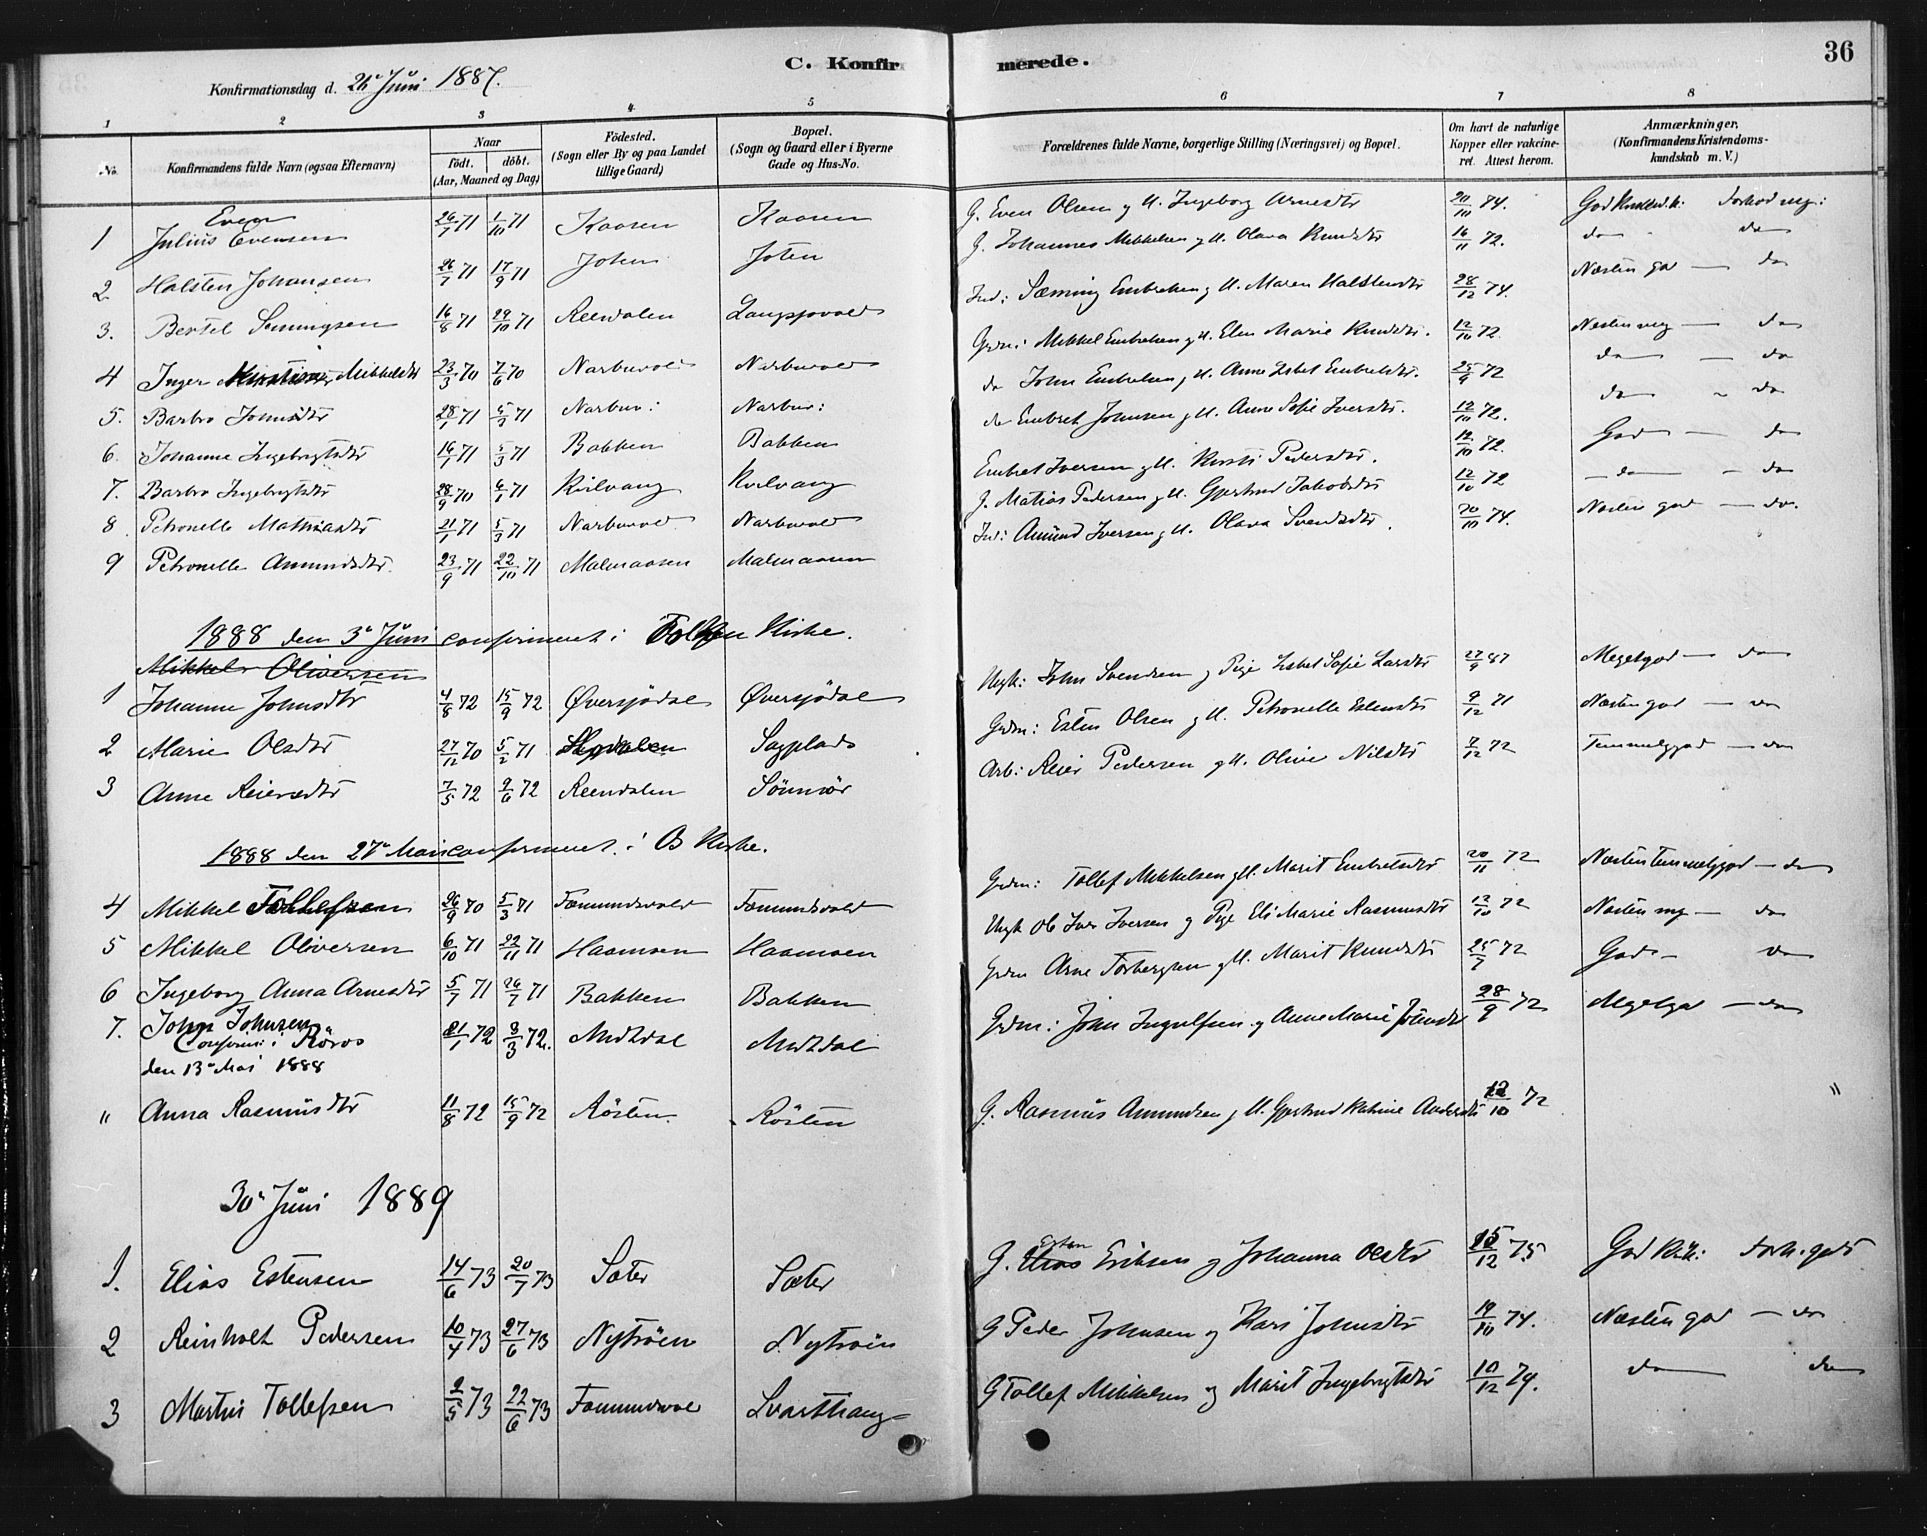 C. Konfirmerede.
36
Konfirmationsdag d. Juni 1887.
1 2 3 4 5 6 7 8
No. Konfirmandens fulde Navn (ogsaa Efternavn) Naar födt. döbt. (Aar, Maaned og Dag) Födested. (Sogn eller By og paa Landet tillige Gaard) Bopæl. (Sogn og Gaard eller i Byerne Gade og Hus-No. Forældrenes fulde Navne, borgerlige Stilling (Næringsvei) og Bopæl. Om havt de naturlige Kopper eller vakcineret. Attest herom. Anmærkninger, (Konfirmandens Kristendomskundskab m. V.)
Even
1 Julius Evensen 26/7 71 1/10 71 Kaasen Kaasen G. Even Olsen g H. Ingeborg Arnesdtr 20/10 74.
2 Halsten Johansen 26/7 71 17/9 71 Joten Joten G. Johannes Mikkelsen g H. Olava Knudsdtr 16/11 72. do do
3. Bertel Semingsen 16/8 71 29/10 71 Reendalen Ind: Sæming Embretsen g H. Maren Halstensdtr 28/12 74. Næsten god — do
4 Inger Mikkelsdtr 23/3 70 7/6 70 Narbuvold Narbuvold Grdm: Mikkel Embretsen g H. Elen Marie Knudsdtr. 12/10 72. Næsten mg — do
5. Barbro Johnsdtr 28/1 71 5/3 71 Narbuv: Narbuv: do John Embretsen g H. Anne Lisbet Embretsdtr. 25/9 72 do — do
6. Johanne Ingebrigtsdtr 16/1 71 5/3 71 Bakken Bakken do Embret Johnsen g H. Anne Sofie Iversdtr. 12/10 72. do — do
7. Barbro Ingebrigtsdtr 28/9 70 6/1 71 Kvilvang Kvilvang Embret Iversen g H. Kirsti Pedersdtr. 12/10 72. God — do
8 Petronelle Mathiasdtr 21/1 71 5/3 71 Narbuvold Narbuvold G. Matias Pedersen g H. Gjertrud Jakobsdtr 12/10 72 — do — do
9 Petronelle Amundsdtr. 23/9 71 22/10 71 Malmaasen Malmaasen Ind: Amund Iversen g H. Olava Svendsdtr. 20/10 74. Næsten god — do.
1888 den 3. Juni confirmeret i Tolgen Kirke.
Mikkel Oliversen
1 Johanne Johnsdtr 4/8 72 15/9 72 Øversjödal Øversjödal Ungk: John Svendsen g Pige Lisbet Sofie Larsdtr 27/9 87 Megetgod — do
2 Marie Olsdtr 27/12 70 5/2 71 Sagplads Grdm: Esten Olsen g H. Petronelle Estensdtr 9/12 71 Næsten god — do
3 Anne Reiersdtr 7/5 72 9/6 72 Reendalen Sönmör Arb: Reier Pedersen g H. Olive Nilsdtr 9/12 72 Temmelg god — do
1888 den 27. Mai confirmeret i B Kirke.
4 Mikkel Tollefsen 26/9 70 5/3 71 Fæmundsvold Fæmundsvold Grdm: Tollef Mikkelsen g H. Marit Embretsdtr 20/11 72 Næsten Temmelg god — do
5 Mikkel Oliversen 6/10 71 22/11 71 Haamoen Haamoen Ungk Iversen g Pige Eli Marie Rasmusdtr 12/10 72 Næsten mg — do
6 Ingeborg Anna Arnesdtr 5/7 71 26/7 71 Bakken Bakken Grdm Arne Torbergsen g H. Marit Knudsdtr 25/7 72 God — do
7. John Johnsen 21/1 72 3/3 72. Midtdal Midtdal Grdm: John Ingulfsen g Anne Marie Johnsdtr 28/9 72 Megetgod — do
Conferm: i Röros
den 13. Mai 1888
" Anna Rasmusdtr 11/8 72 15/9 72 Rösten Rösten G. Rasmus Amundsen g H. Gjertrud Katrine Andersdtr 12/10 72 "
30. Juni 1889
1. Elias Estensen 14/6 73 20/7 73 Sæter Sæter G. Esten Eriksen og Johanna Olsdtr 15/12 75 God Kdk: Forh. godt
2 Reinholt Pedersen 10/4 73 27/6 73 Nytröen Nytröen G Peder Johnsen og Kari Johnsdtr 19/10 74. Næsten god — do
3 Martin Tollefsen 2/5 73 22/6 73 Fæmundsvold G Tollef Mikkelsen og Marit Ingebrigtsdtr 10/12 74. do do